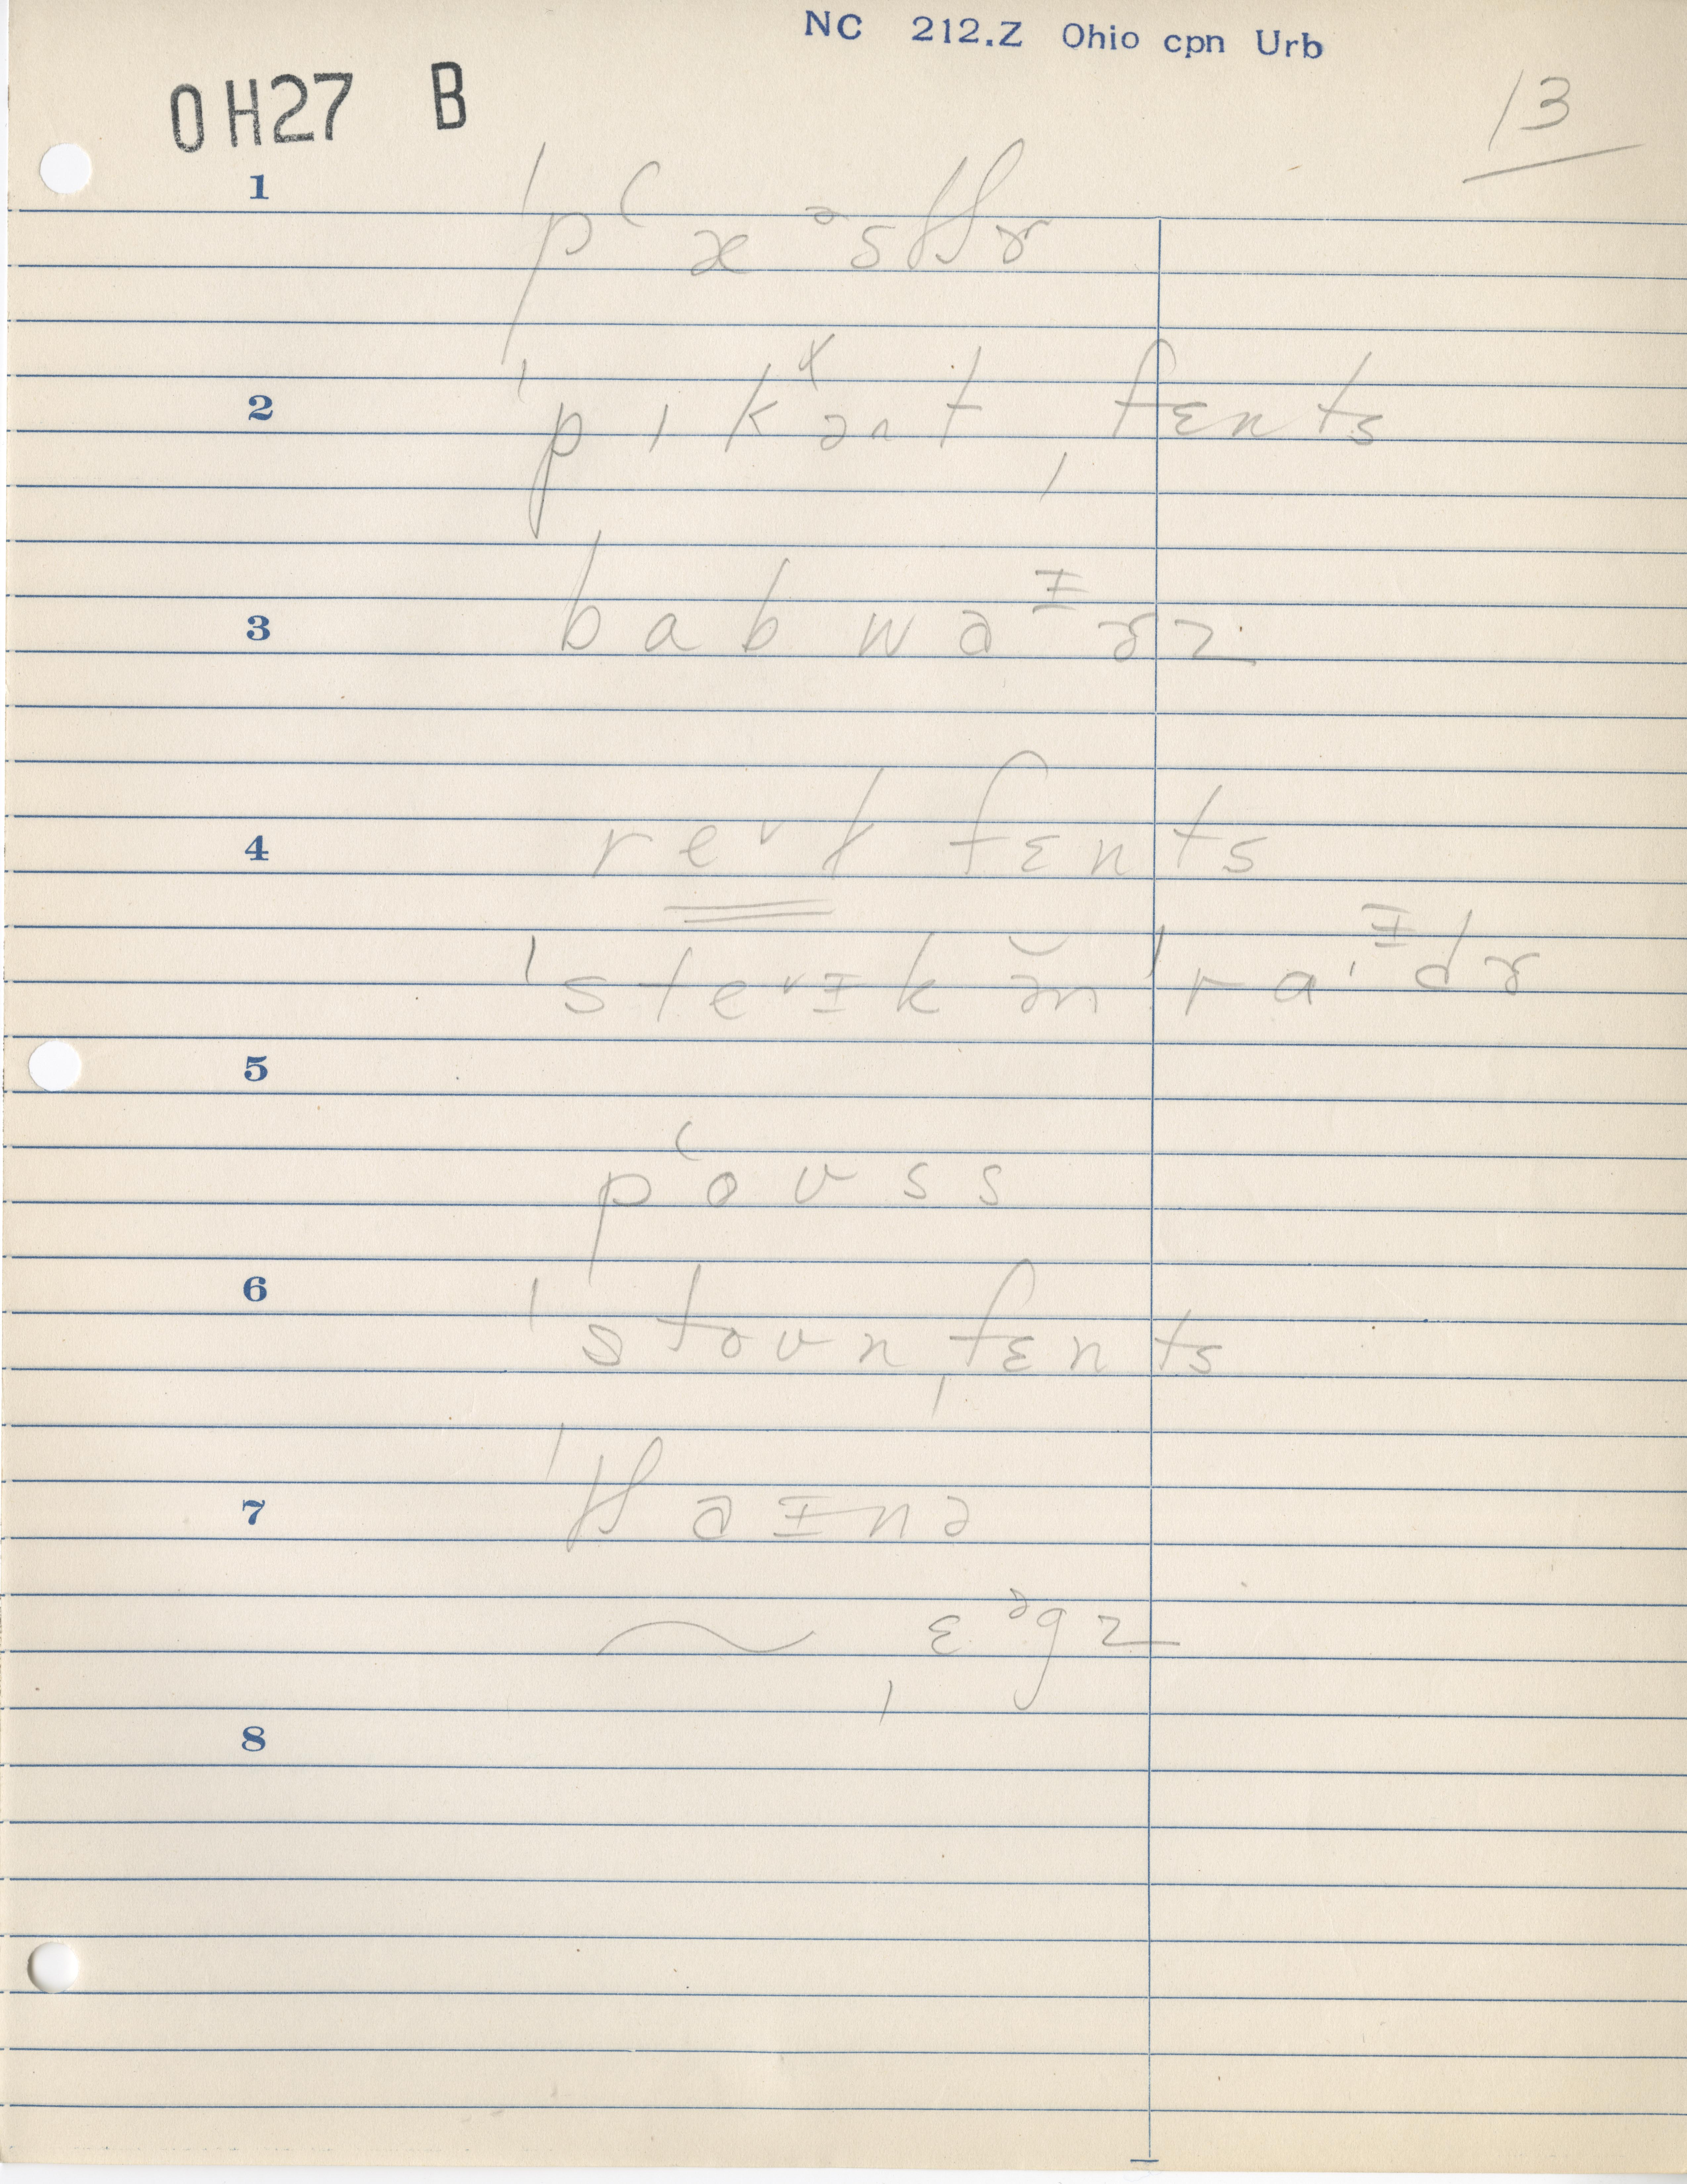 NC 212.Z Ohio cpn Urb
OH27 B
13
1
ˈpʻæᵊstʃɚ
2
ˈpɪkˣənt ˌfɛnts
3
babwaᵻɚz
4
re˅l fɛnts
ˈste˅ɪk ə̆n ˈraˈᵻdɚ
5
pʻoʊss
6
ˈstoʊnˌfɛnts
7
ˈtʃaɪnə
~ ˌɛᵊgz
8